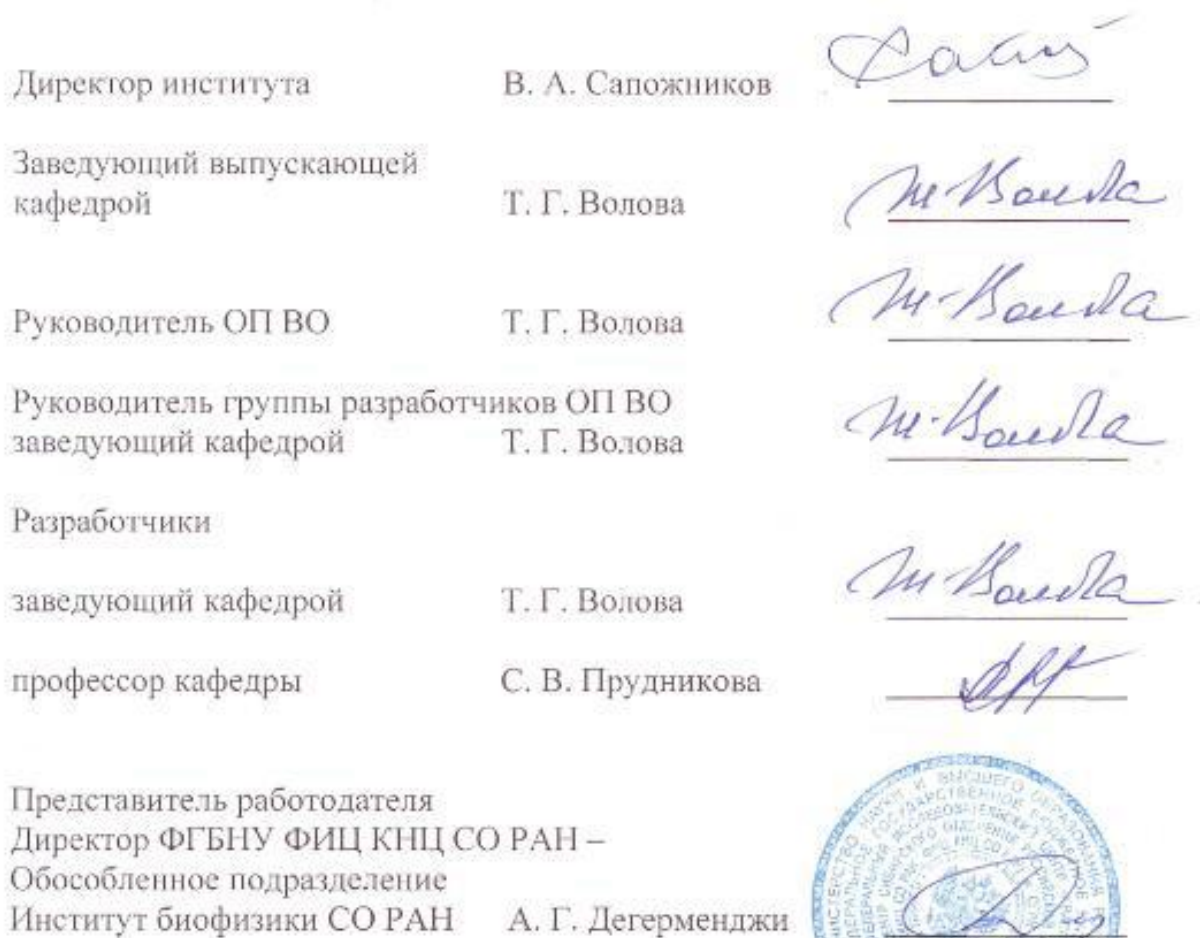 Директор института В. А. Сапожников
Заведующий выпускающей
кафедрой Т. Г. Волова
Руководитель ОП ВО Т. Г. Волова
Руководитель группы разработчиков ОП ВО
заведующий кафедрой Т. Г. Волова
Разработчики
заведующий кафедрой Т. Г. Волова
профессор кафедры С. В. Прудникова
Представитель работодателя
Директор ФГБНУ ФИЦ КНЦ СО РАН –
Обособленное подразделение
Институт биофизики СО РАН А. Г. Дегерменджи